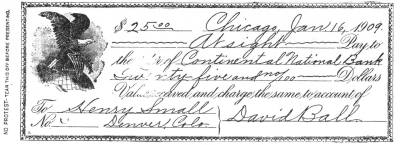 NO PROTEST-TEAR THIS OFF BEFORE PRESENTING.
$25.00 Chicago, Jan 16, 1909.
At sight Pay to
the of Continental National Bank
Twenty five and no/100 Dollars
Value received and charge the same to account of
To Henry Small
No Denver, Colo David Ball